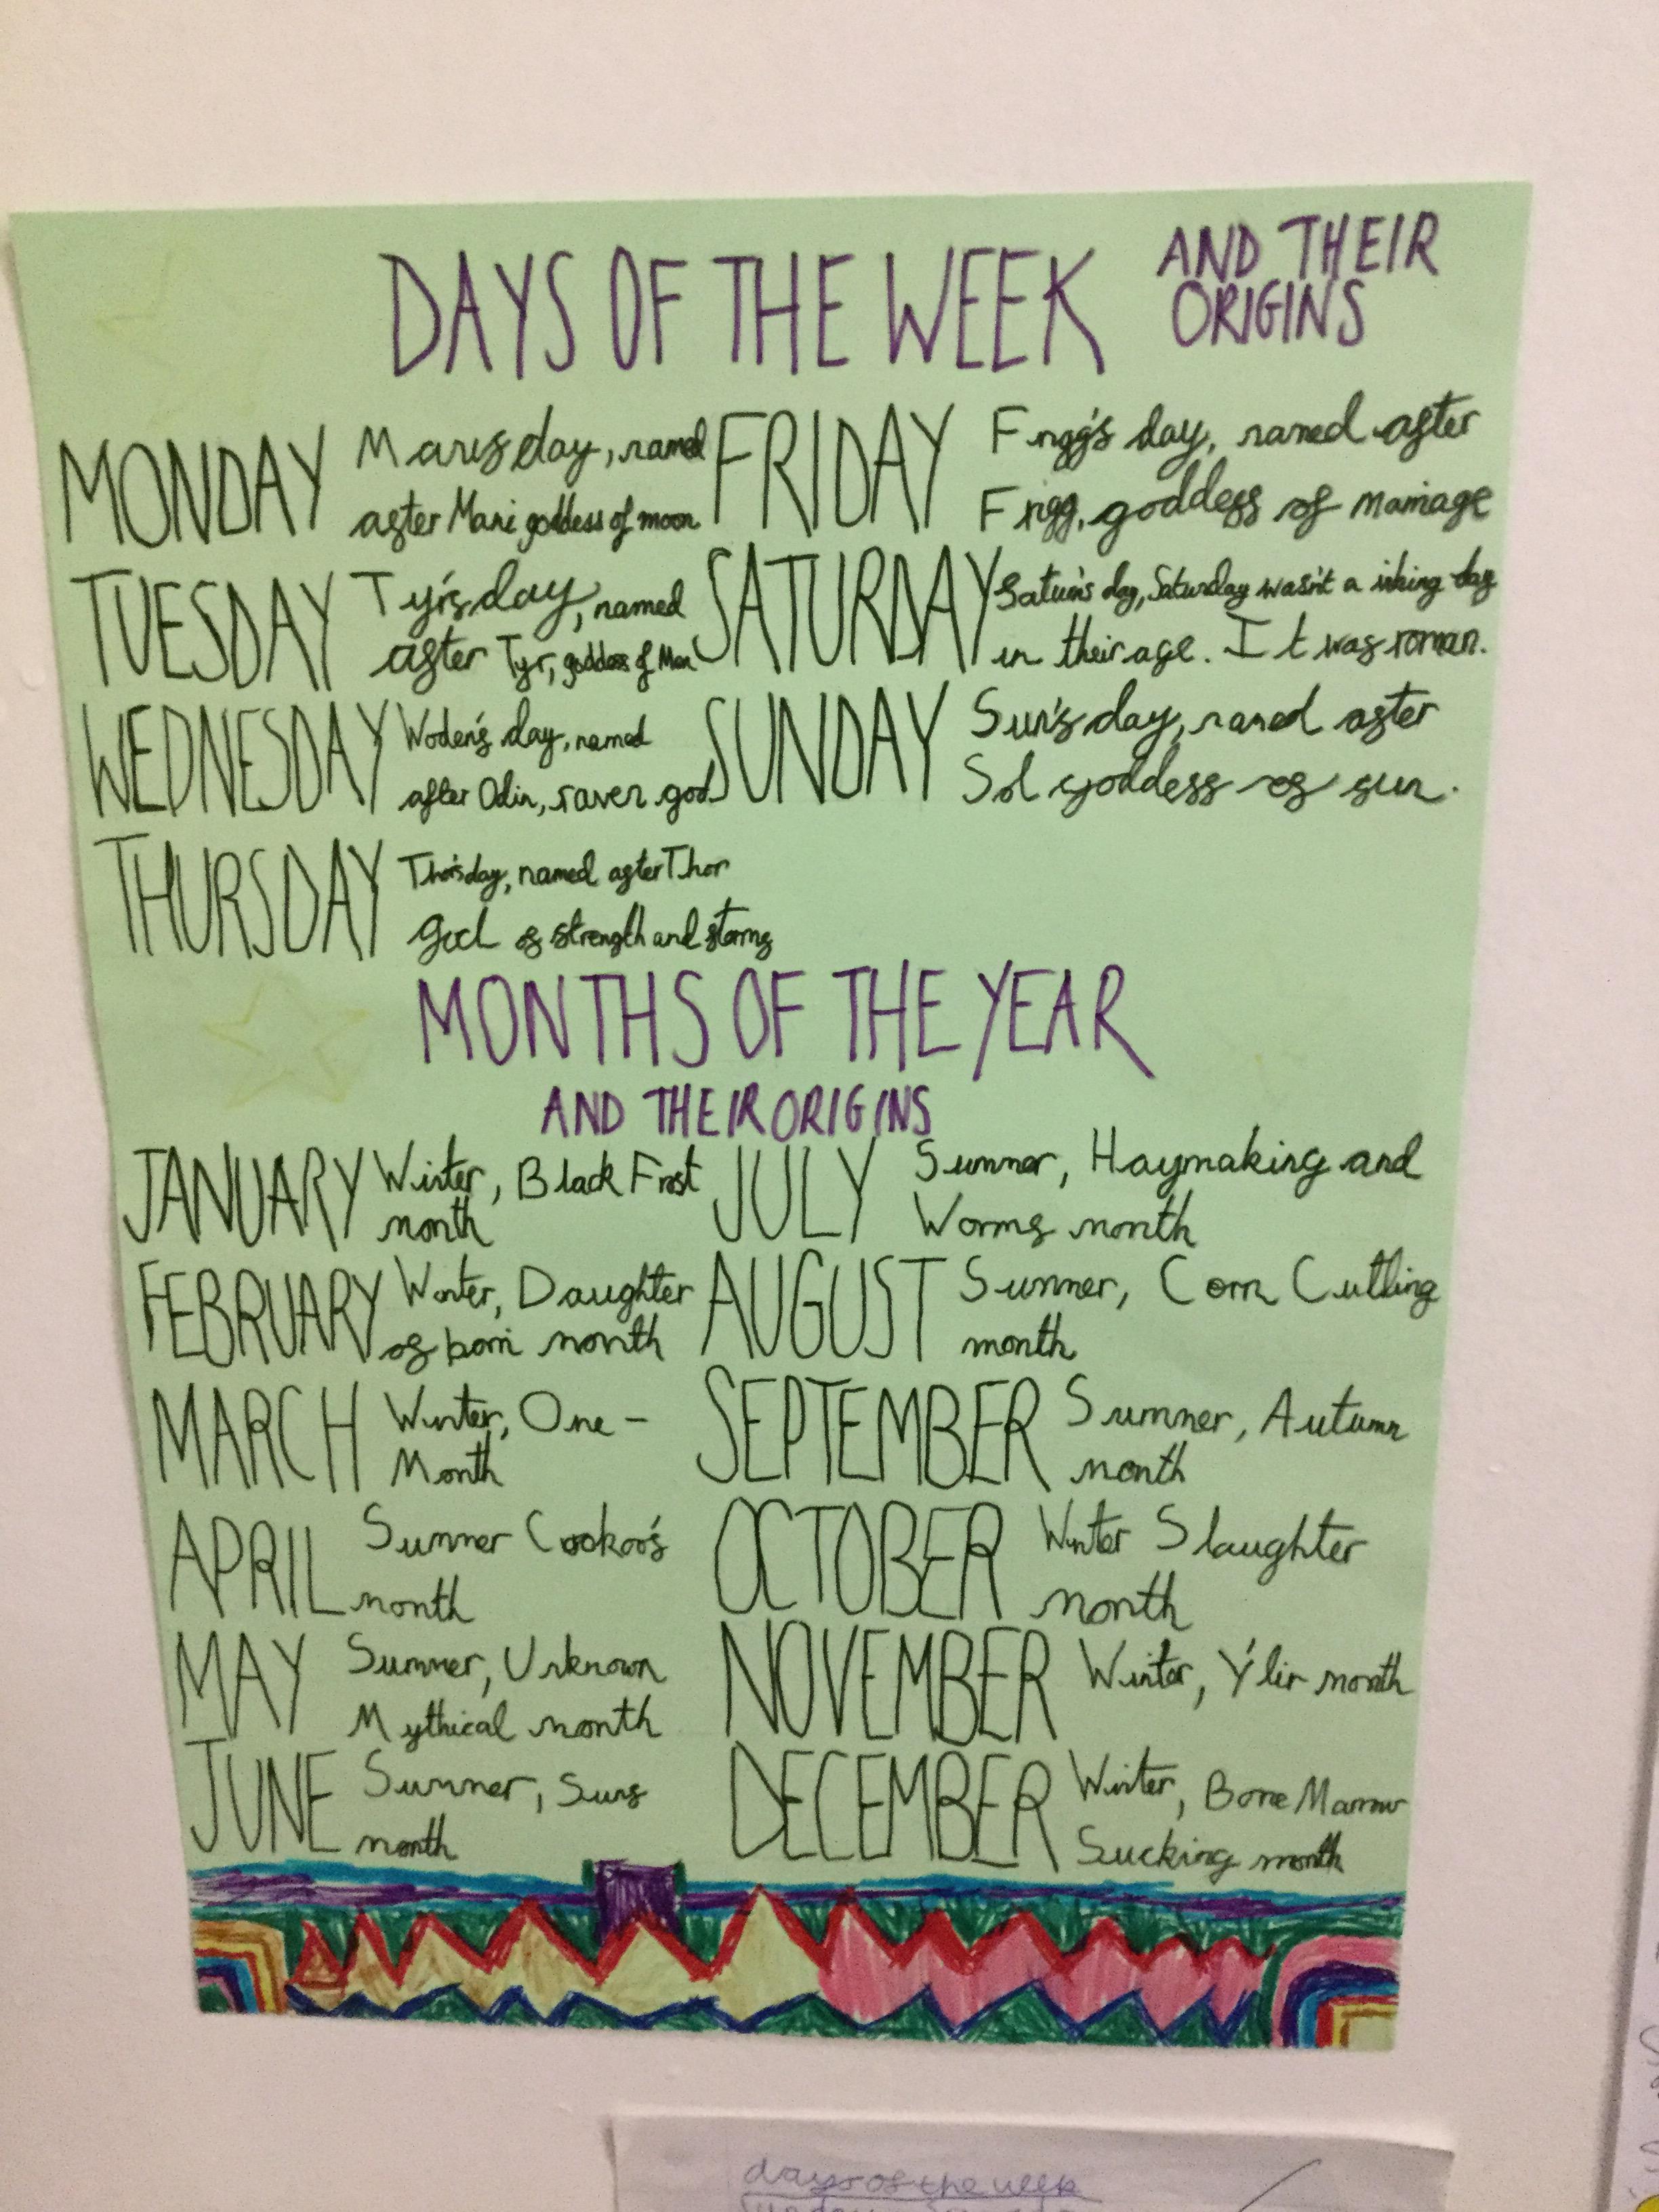 DAYS OF THE WEEK
AND THEIR
ORIGINS
MONDAY
Manis day, named
after Mani goddess of moon
TUESDAY
Tyr's day, named
after Tyr, goddess of Man
WEDNESDAY
Woden's day, named
after Odin, raven god
THURSDAY
Thorsday, named after Thor
God of strength and storms
FRIDAY
Frigg's day, named after
Frigg, goddess of marriage
SATURDAY
Saturn's day, Saturday wasn't a viking day
in their age. It was roman.
SUNDAY
Sun's day, named after
Sol goddess of sun.
MONTHS OF THE YEAR
AND THEIR ORIGINS
JANUARY
Winter, Black Frost
month
FEBRUARY
Winter, Daughter
of born month
MARCH
Winter, One-
Month
APRIL
Summer Cookoo's
month
MAY
Summer, Unknown
Mythical month
JUNE
Summer, Suns
month
JULY
Summer, Haymaking and
Worms month
AUGUST
Summer, Corn Cutting
month
SEPTEMBER
Summer, Autumn
month
OCTOBER
Winter Slaughter
month
NOVEMBER
Winter, Ýlir month
DECEMBER
Winter, Bone Marrow
Sucking month
days of the week